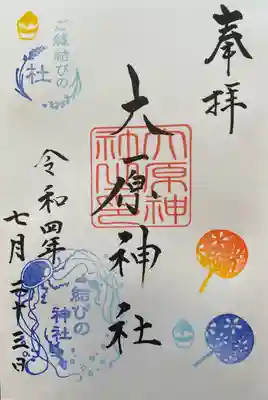 奉拝
ご縁結びの
杜
大原神社
令和四年
七月二十三日
ご縁結びの
神社